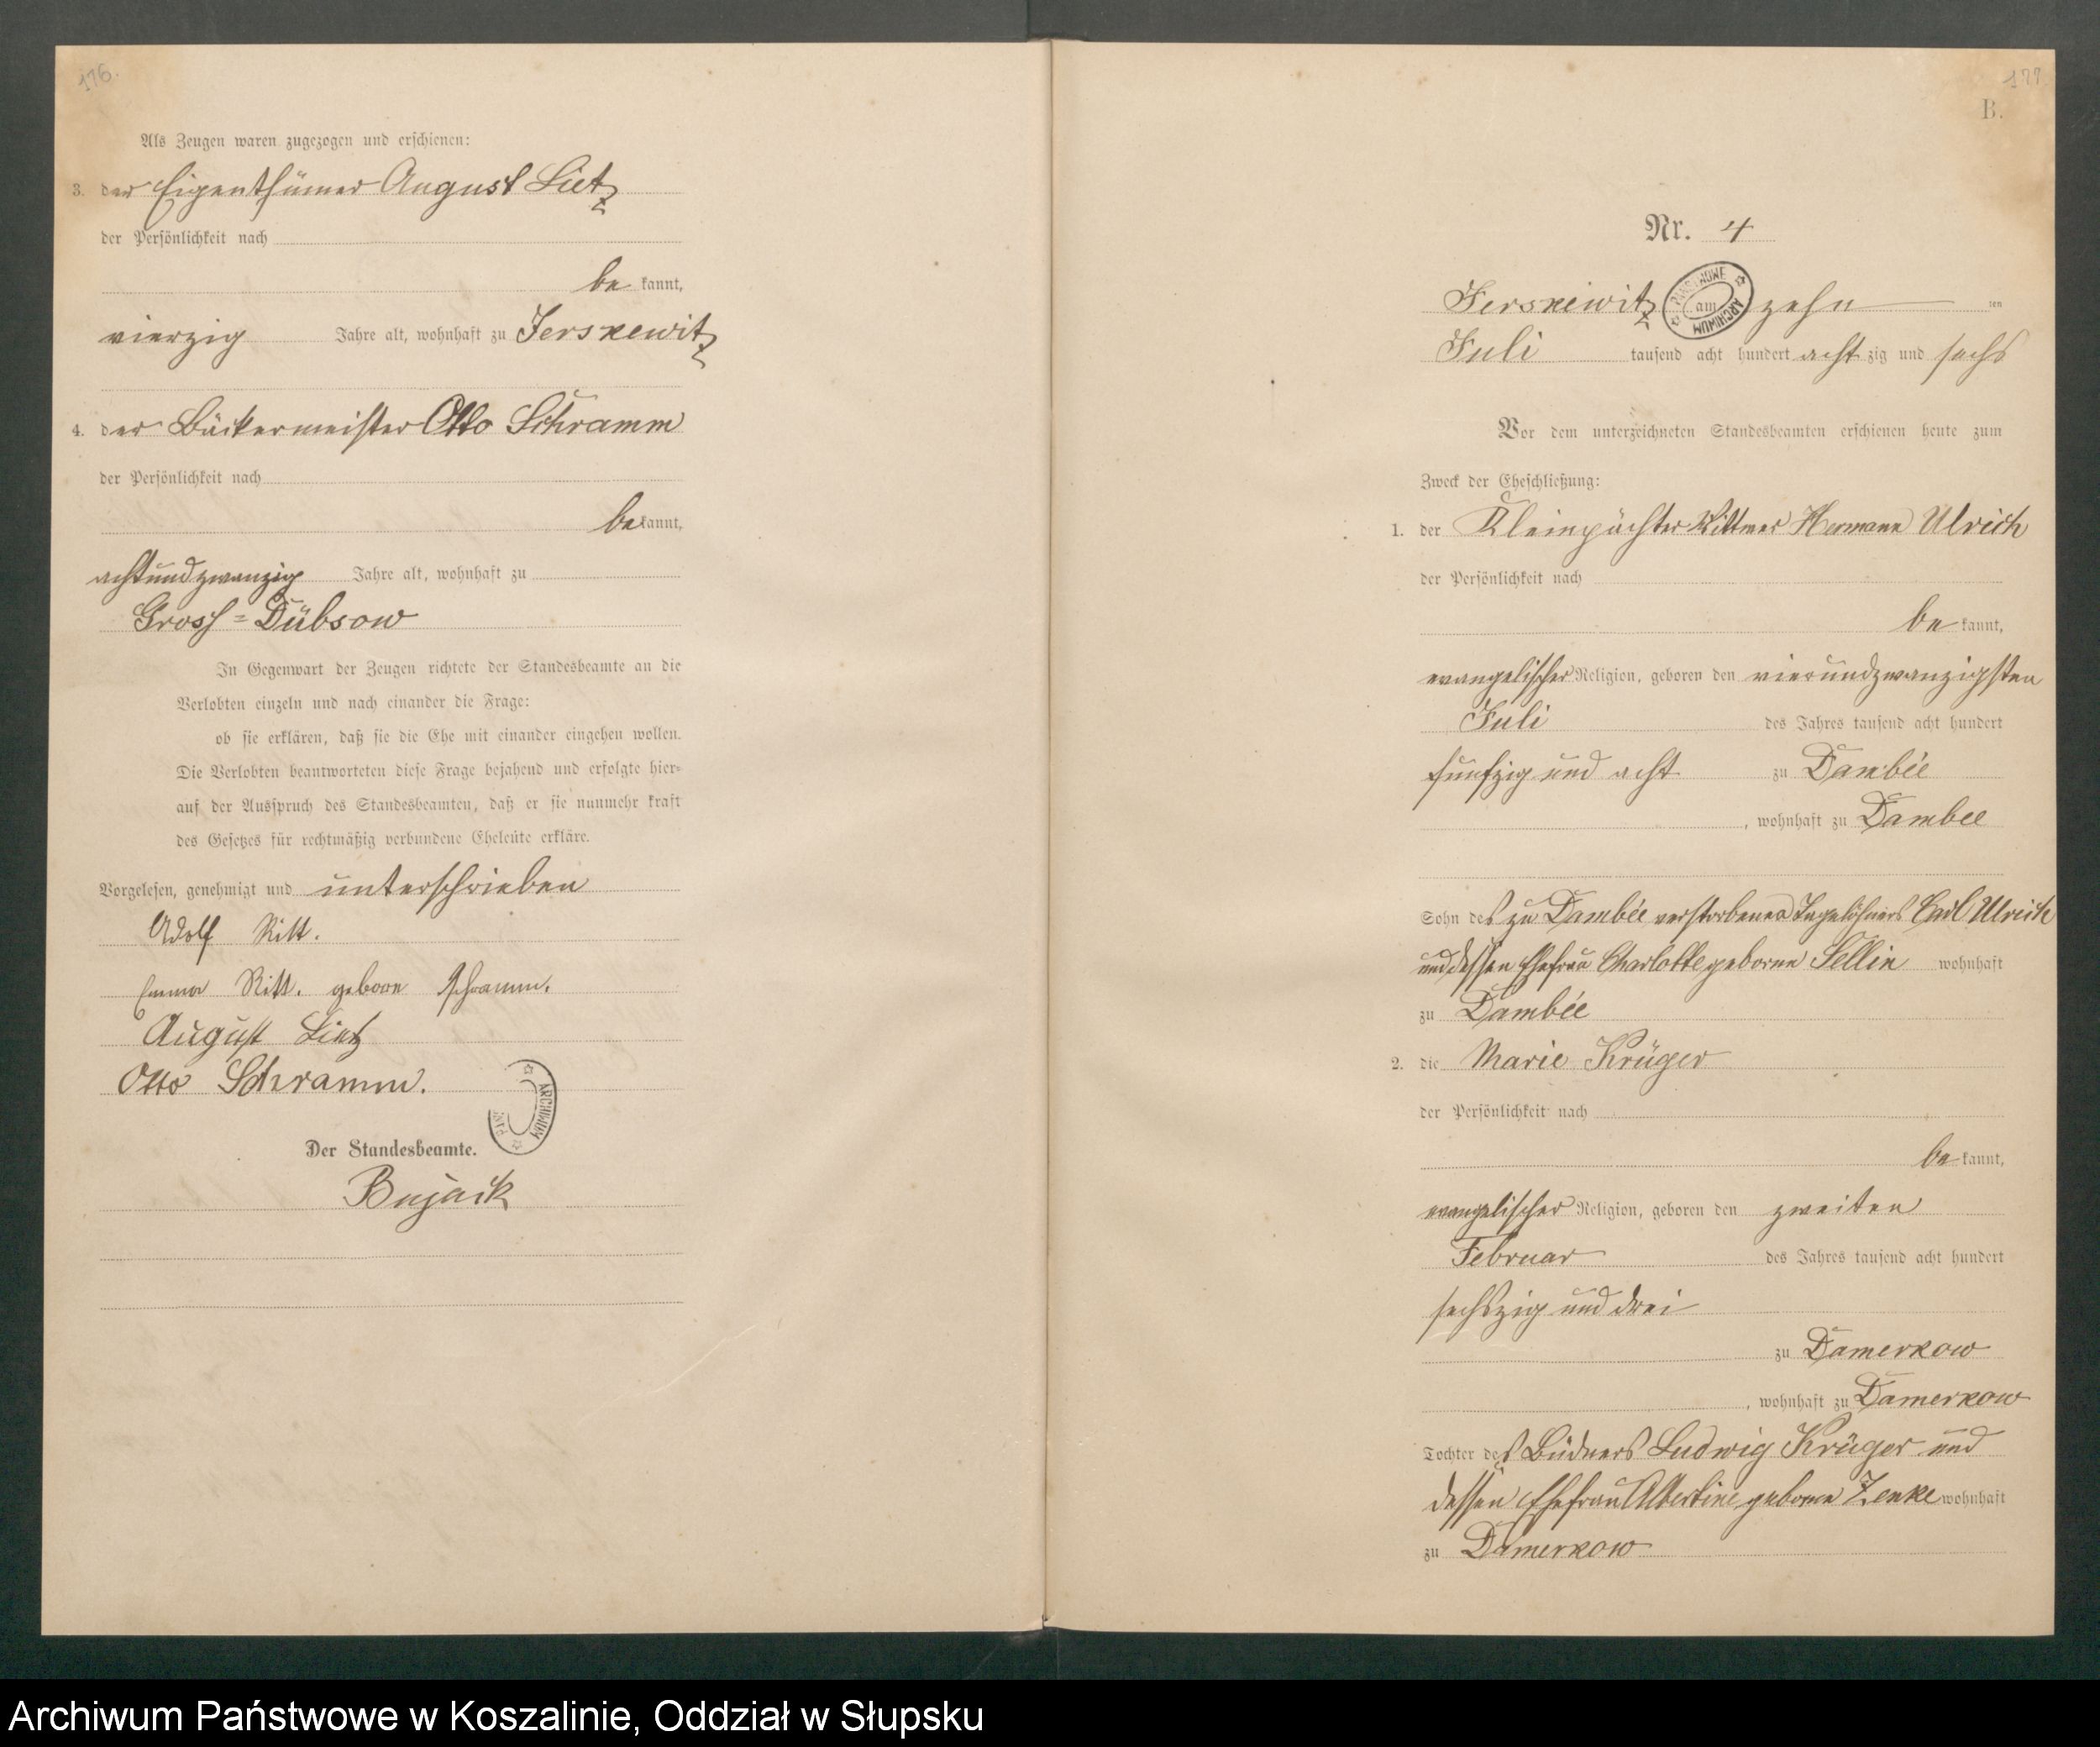 176.
Als Zeugen waren zugezogen und erschienen:
3. der Eigenthümer August Lietz
der Persönlichkeit nach
be kannt,
vierzig Jahre alt, wohnhaft zu Jerskewitz
4. der Bäckermeister Otto Schramm
der Persönlichkeit nach
be kannt,
achtundzwanzig Jahre alt, wohnhaft zu
Gross-Dübsow
In Gegenwart der Zeugen richtete der Standesbeamte an die
Verlobten einzeln und nach einander die Frage:
ob sie erklären, daß sie die Ehe mit einander eingehen wollen.
Die Verlobten beantworteten diese Frage bejahend und erfolgte hier-
auf der Ausspruch des Standesbeamten, daß er sie nunmehr kraft
des Gesetzes für rechtmäßig verbundene Eheleute erkläre.
Vorgelesen, genehmigt und unterschrieben
Adolf Ritt.
Emma Ritt. geboren Schramm.
August Lietz
Otto Schramm.
ARCHIWUM
Der Standesbeamte.
Bujack
177
B.
Nr. 4
Jerskewitz am zehn ten
ARCHIWUM PAŃSTWOWE
Juli tausend acht hundert acht zig und sechs
Vor dem unterzeichneten Standesbeamten erschienen heute zum
Zweck der Eheschließung:
1. der Kleinpächter Hermann Ulrich
der Persönlichkeit nach
be kannt,
evangelischer Religion, geboren den vierundzwanzigsten
Juli des Jahres tausend acht hundert
fünfzig und acht zu Dambée
, wohnhaft zu Dambee
Sohn des zu Dambée verstorbenen Tagelöhners Carl Ulrich
und dessen Ehefrau Charlotte geborne Sellin wohnhaft
zu Dambée
2. die Marie Krüger
der Persönlichkeit nach
be kannt,
evangelischer Religion, geboren den zweiten
Februar des Jahres tausend acht hundert
sechszig und drei
zu Damerkow
, wohnhaft zu Damerkow
Tochter des Büdners Ludwig Krüger und
dessen Ehefrau Albertine geborne Zenke wohnhaft
zu Damerkow
Archiwum Państwowe w Koszalinie, Oddział w Słupsku